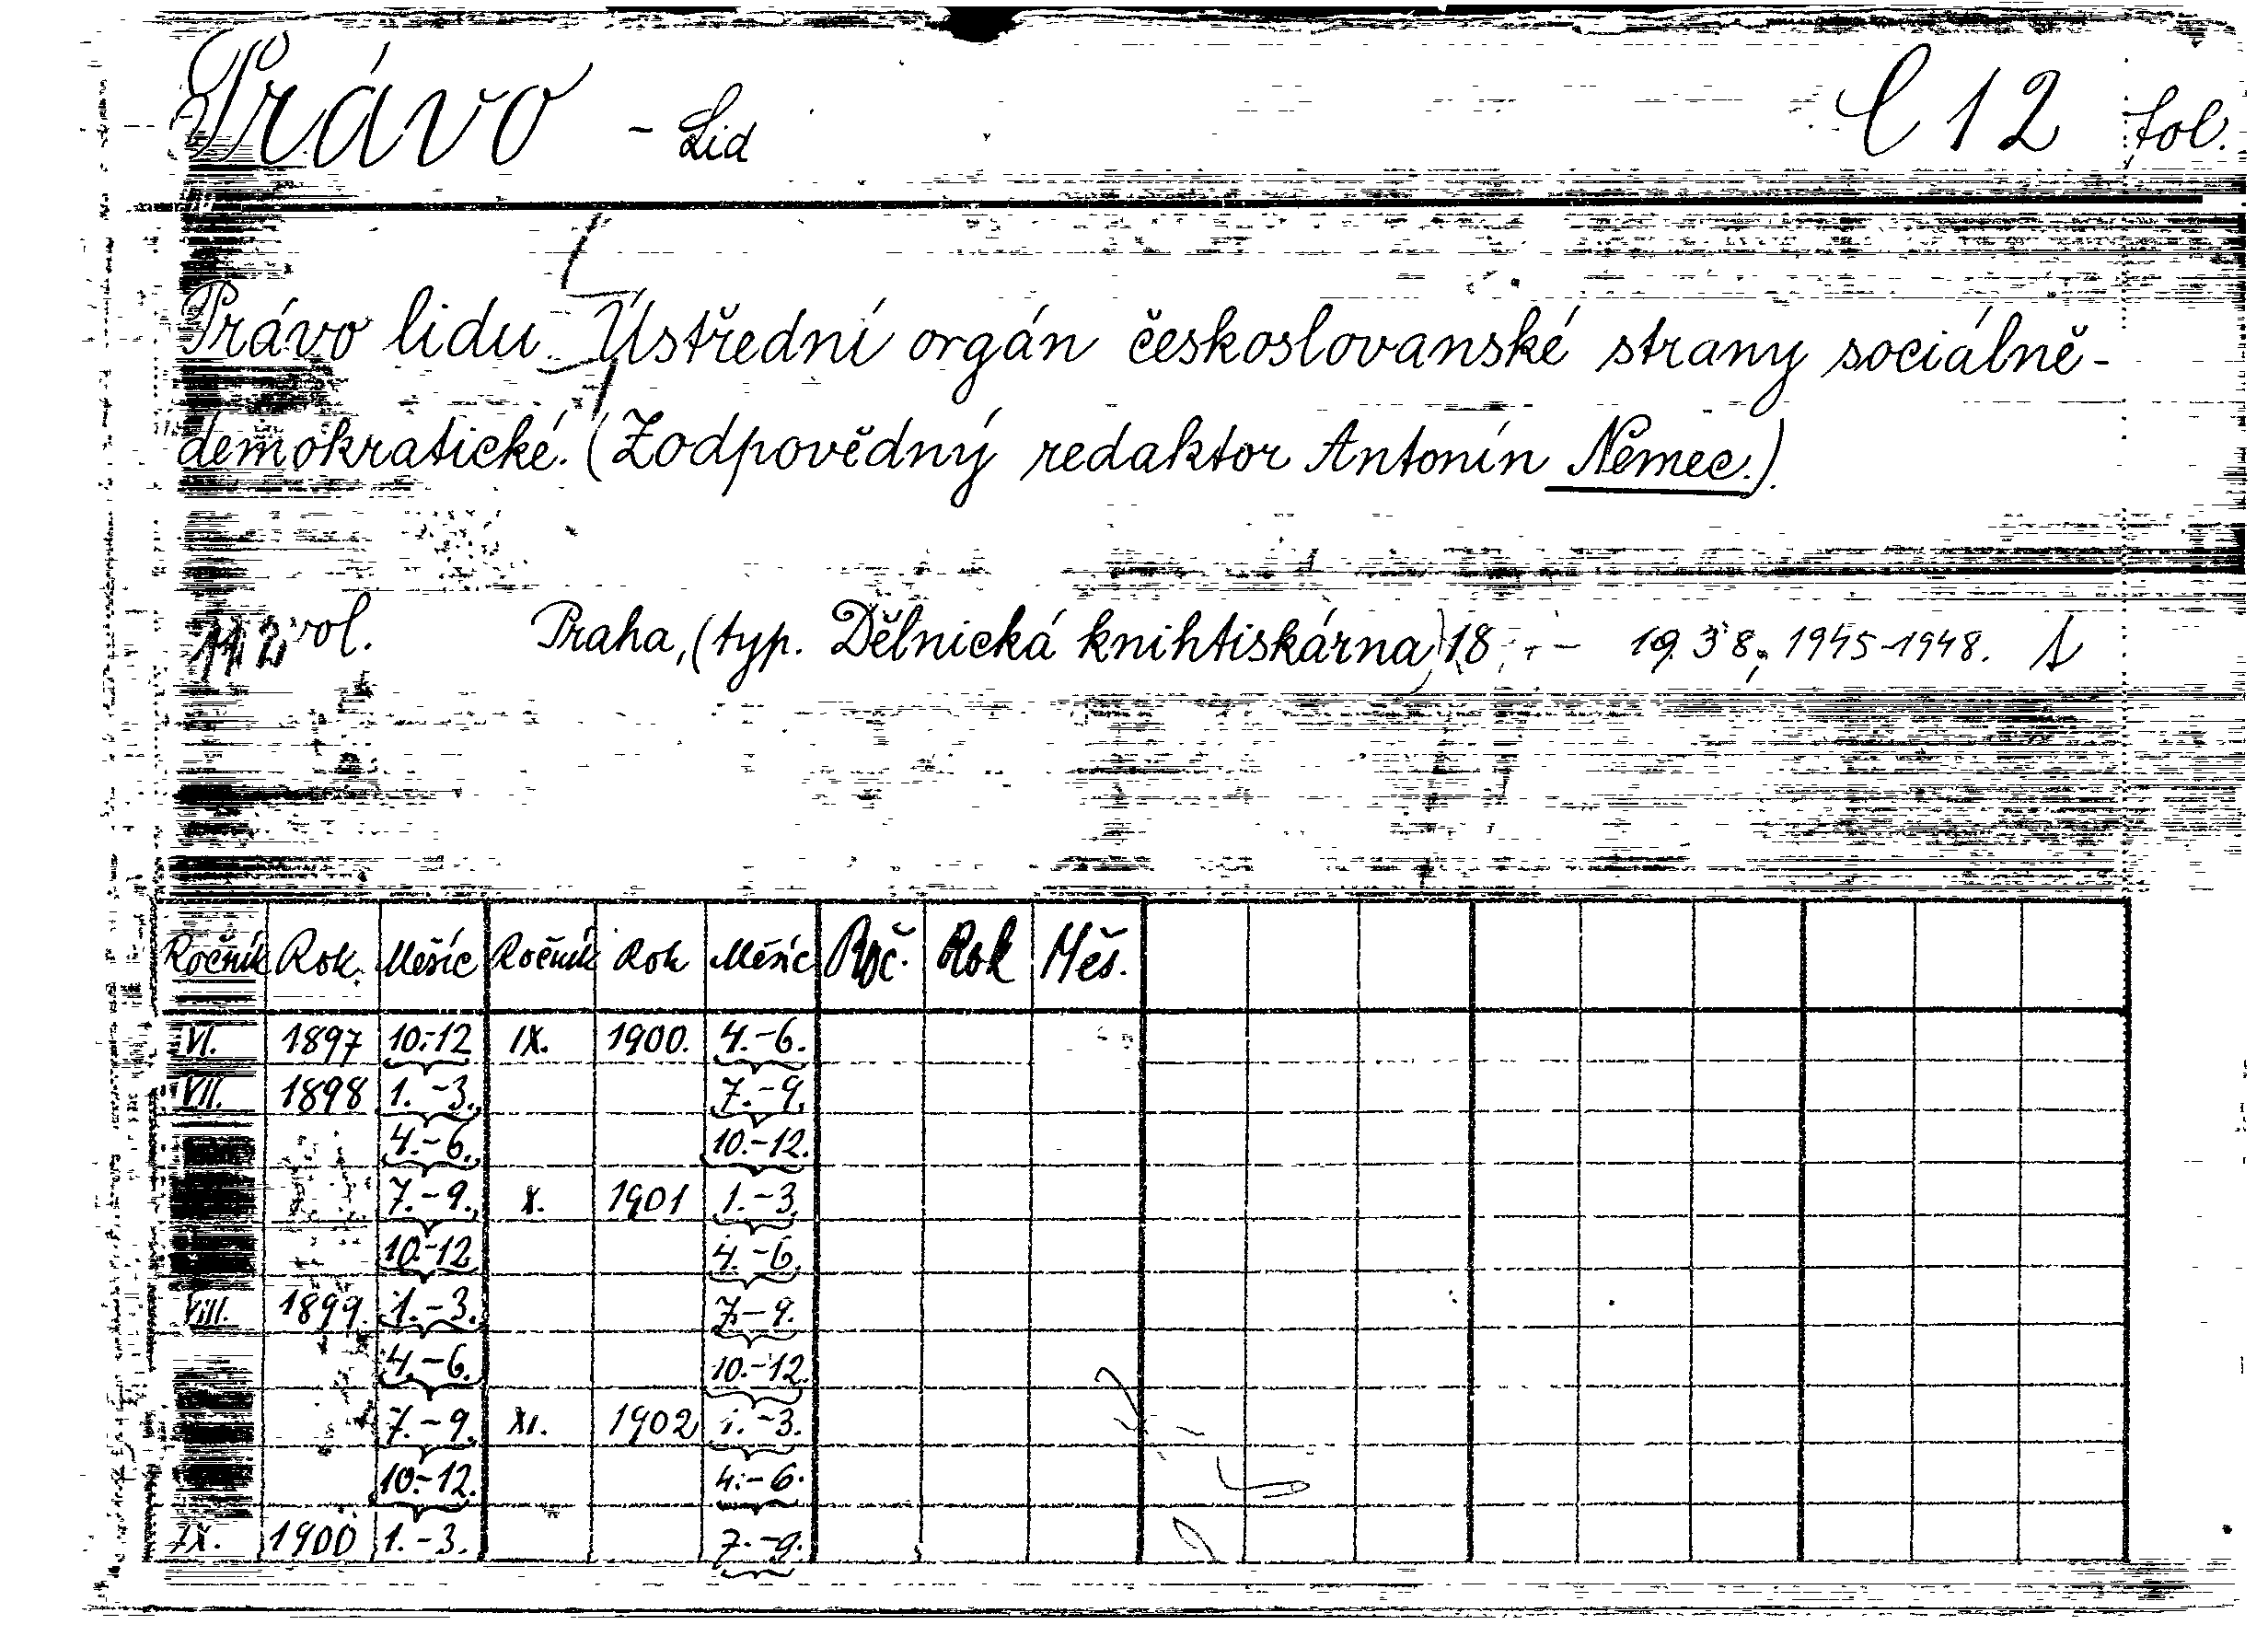 Právo - Lid C 12 fol.
Právo lidu Ústřední orgán českoslovanské strany sociálně-
demokratické. (Zodpovědný redaktor Antonín Němec.)
vol. Praha, (typ. Dělnická knihtiskárna) 18 - 1938, 1945-1948.
Ročník Rok Měsíc Ročník Rok Měsíc Roč. Rok Měs.
VI. 1897 10.-12 IX. 1900. 4.-6.
VII. 1898 1.-3. 7.-9.
4.-6. 10.-12.
7.-9. X. 1901 1.-3.
10.-12. 4.-6.
VIII. 1899. 1.-3. 7.-9.
4.-6. 10.-12.
7.-9. XI. 1902 1.-3.
10.-12. 4.-6.
IX. 1900 1.-3. 7.-9.